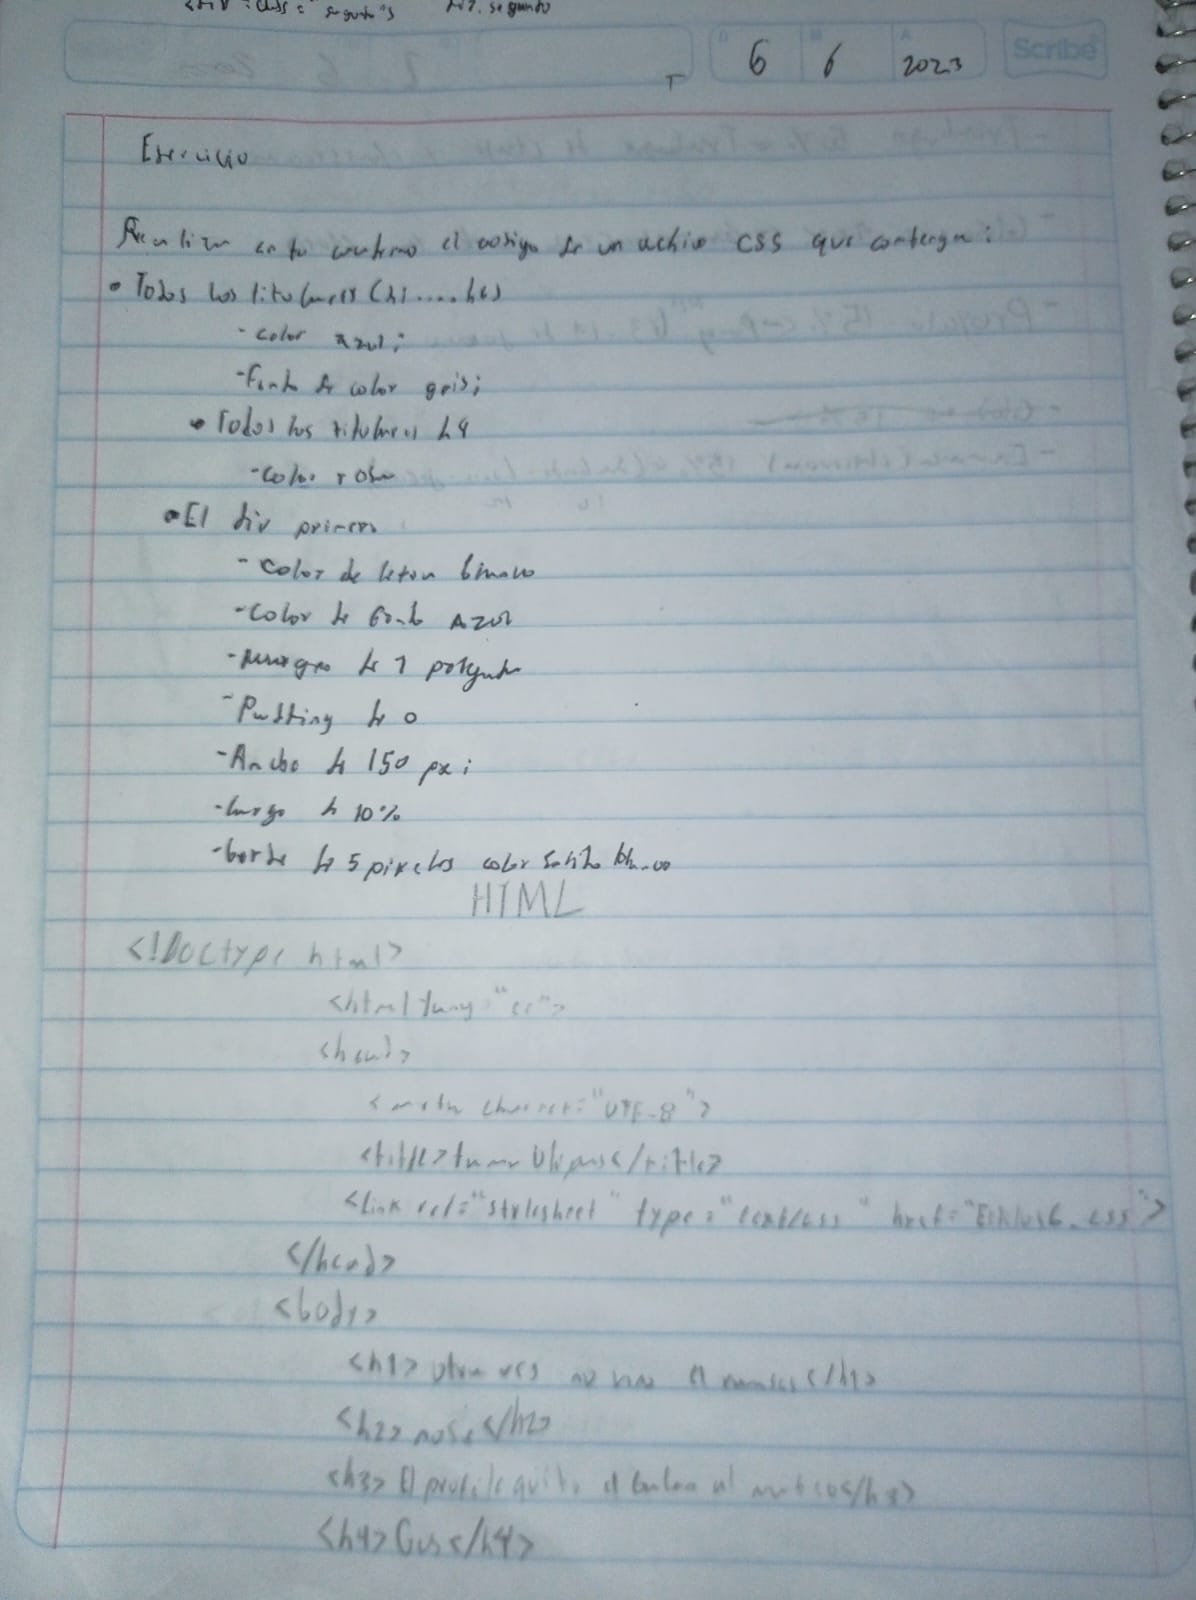 segundo
D 6 M 6 A 2023 Scribe
Ejercicio
Realizar en tu cuaderno el codigo de un achivo CSS que contenga:
• Todos los titulares (h1.....h6)
- color azul;
- Fondo de color gris;
• Todos los titulares h4
- Color rosa
• El div primero
- Color de letra blanco
- Color de fondo Azul
- de 1 pulgada
- Padding de 0
- Ancho de 150 px;
- largo de 10%
- borde de 5 pixeles color solido blanco
HTML
<!Doctype html>
<html lang="es">
<head>
<meta charset="UTF-8">
<title> </title>
<link rel="stylesheet" type="text/css" href=" .css">
</head>
<body>
<h1> no vino el </h1>
<h2> </h2>
<h3> El profe le quito el balon al </h3>
<h4> </h4>